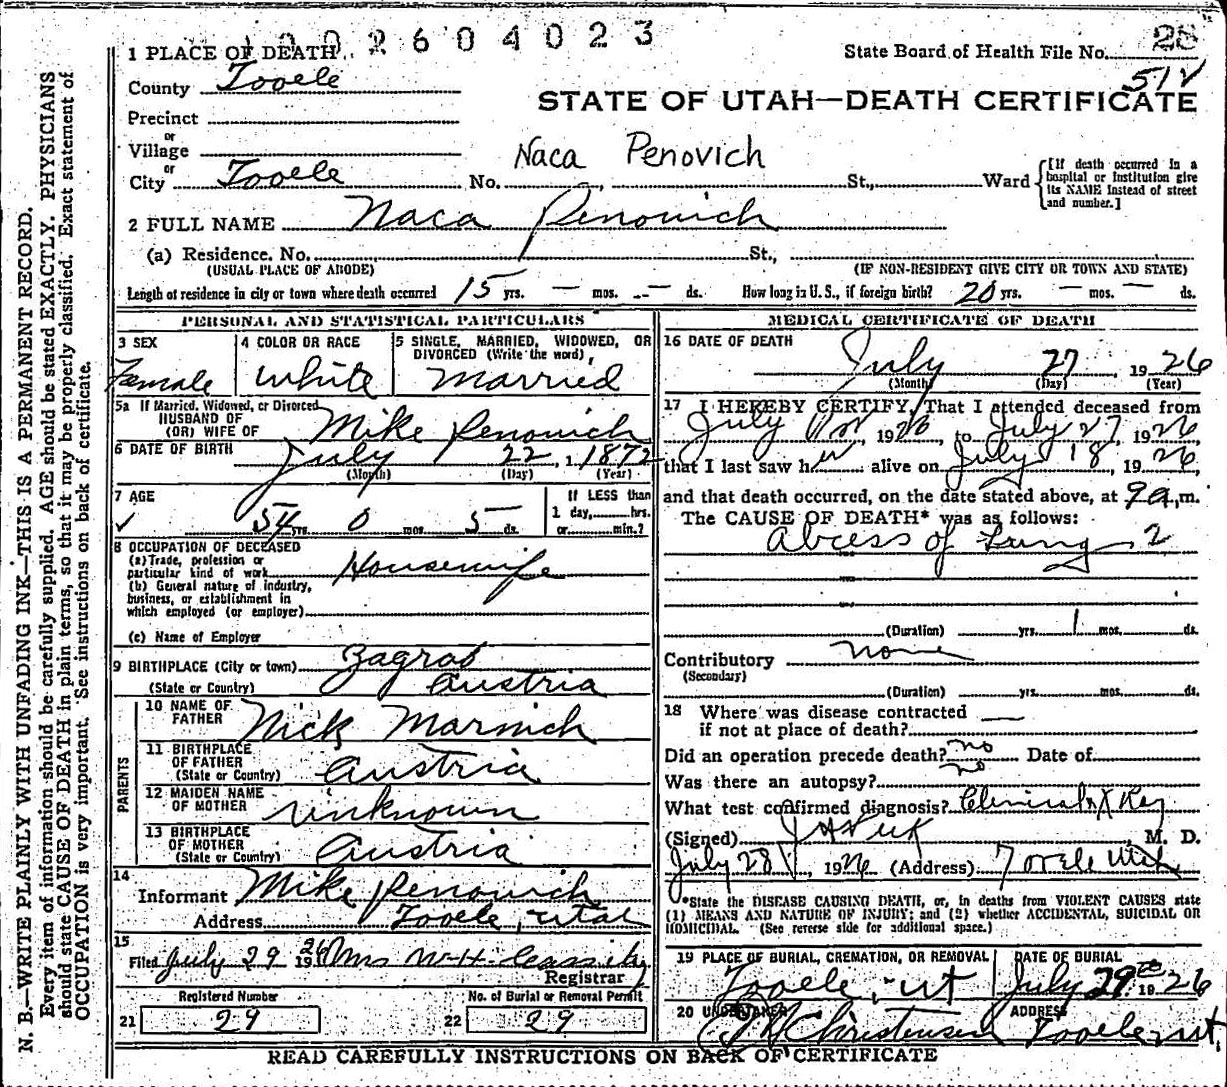 1002604023
1 PLACE OF DEATH
State Board of Health File No. 28
51 V
County Tooele
STATE OF UTAH—DEATH CERTIFICATE
Precinct
or
Village
Naca Penovich
or
City Tooele No. St., Ward
[If death occurred in a hospital or institution give its NAME instead of street and number.]
2 FULL NAME Naca Penovich
(a) Residence. No. St.,
(USUAL PLACE OF ABODE) (IF NON-RESIDENT GIVE CITY OR TOWN AND STATE)
Length of residence in city or town where death occurred 15 yrs. — mos. — ds. How long in U.S., if foreign birth? 20 yrs. — mos. — ds.
PERSONAL AND STATISTICAL PARTICULARS
3 SEX
Female
4 COLOR OR RACE
White
5 SINGLE, MARRIED, WIDOWED, OR DIVORCED (Write the word)
Married
5a If Married, Widowed, or Divorced
HUSBAND OF
(OR) WIFE OF Mike Penovich
6 DATE OF BIRTH July 22, 1872
(Month) (Day) (Year)
7 AGE
54 yrs. 0 mos. 5 ds.
If LESS than
1 day, hrs.
or min.?
8 OCCUPATION OF DECEASED
(a) Trade, profession or
particular kind of work Housewife
(b) General nature of industry,
business, or establishment in
which employed (or employer)
(c) Name of Employer
9 BIRTHPLACE (City or town) Zagrab
(State or Country) Austria
PARENTS
10 NAME OF
FATHER Nick Marnich
11 BIRTHPLACE
OF FATHER
(State or Country) Austria
12 MAIDEN NAME
OF MOTHER Unknown
13 BIRTHPLACE
OF MOTHER
(State or Country) Austria
14
Informant Mike Penovich
Address Tooele, Utah
15
Filed July 29 1926 Mrs W. H. Cassity
Registrar
Registered Number
21 29
No. of Burial or Removal Permit
22 29
MEDICAL CERTIFICATE OF DEATH
16 DATE OF DEATH
July 27 1926
(Month) (Day) (Year)
17 I HEREBY CERTIFY, That I attended deceased from
July 1st, 1926, to July 27, 1926
that I last saw her alive on July 18, 1926,
and that death occurred, on the date stated above, at 9 a.m.
The CAUSE OF DEATH* was as follows:
Abcess of Lung 2
(Duration) yrs. 1 mos. ds.
Contributory none
(Secondary)
(Duration) yrs. mos. ds.
18 Where was disease contracted
if not at place of death? —
Did an operation precede death? no Date of
Was there an autopsy? no
What test confirmed diagnosis? Clinical & X Ray
(Signed) M. D.
July 28, 1926 (Address) Tooele Utah
*State the DISEASE CAUSING DEATH, or, in deaths from VIOLENT CAUSES state
(1) MEANS AND NATURE OF INJURY; and (2) whether ACCIDENTAL, SUICIDAL OR
HOMICIDAL. (See reverse side for additional space.)
19 PLACE OF BURIAL, CREMATION, OR REMOVAL
Tooele, Ut
DATE OF BURIAL
July 29th 1926
20 UNDERTAKER
Christensen
ADDRESS
Tooele, Ut,
READ CAREFULLY INSTRUCTIONS ON BACK OF CERTIFICATE
N. B.—WRITE PLAINLY WITH UNFADING INK—THIS IS A PERMANENT RECORD.
Every item of information should be carefully supplied. AGE should be stated EXACTLY. PHYSICIANS
should state CAUSE OF DEATH in plain terms, so that it may be properly classified. Exact statement of
OCCUPATION is very important. See instructions on back of certificate.